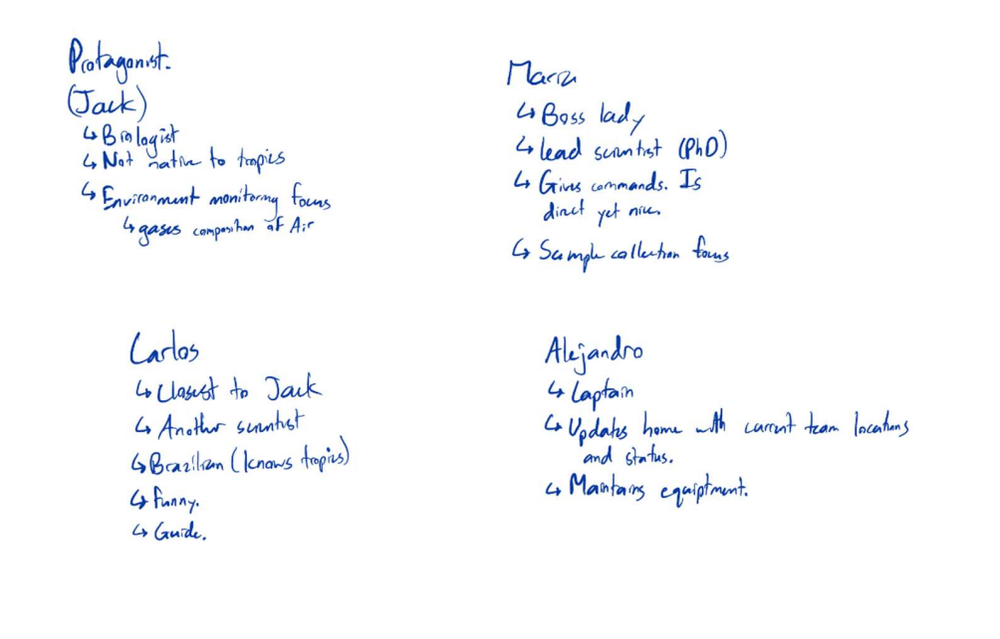 Protagonist.
(Jack)
↳ Biologist
↳ Not native to tropics
↳ Environment monitoring focus
↳ gases composition of Air
Maria
↳ Boss lady
↳ lead scientist (PhD)
↳ Gives commands. Is
direct yet nice.
↳ Sample collection focus
Carlos
↳ Closest to Jack
↳ Another scientist
↳ Brazilian (knows tropics)
↳ funny.
↳ Guide.
Alejandro
↳ Captain
↳ Updates home with current team locations
and status.
↳ Maintains equiptment.